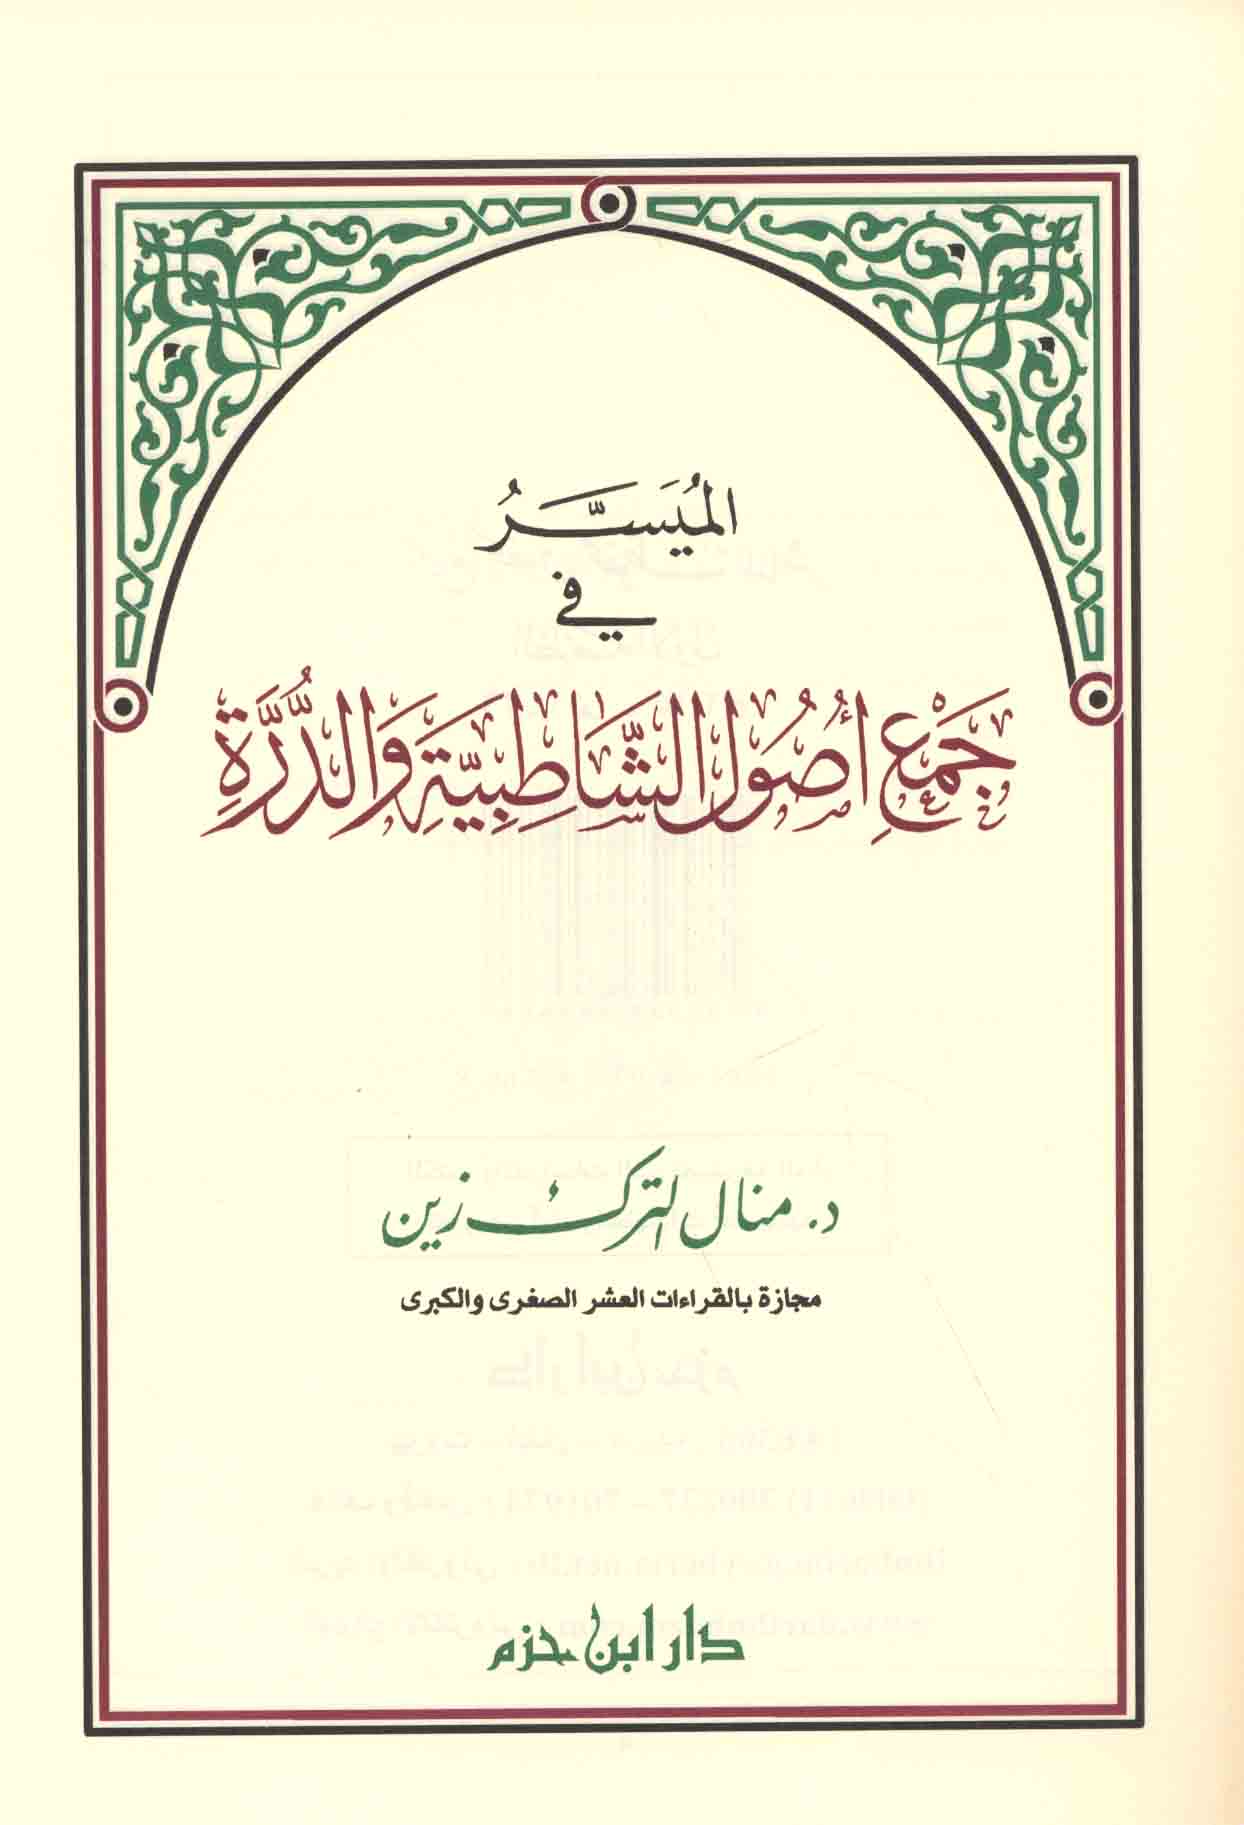 الميَسَّرُ
في
جَمْعِ أُصُولِ الشَّاطِبِيَّةِ وَالدُّرَّةِ
د. منال الترك زين
مجازة بالقراءات العشر الصغرى والكبرى
دار ابن حزم